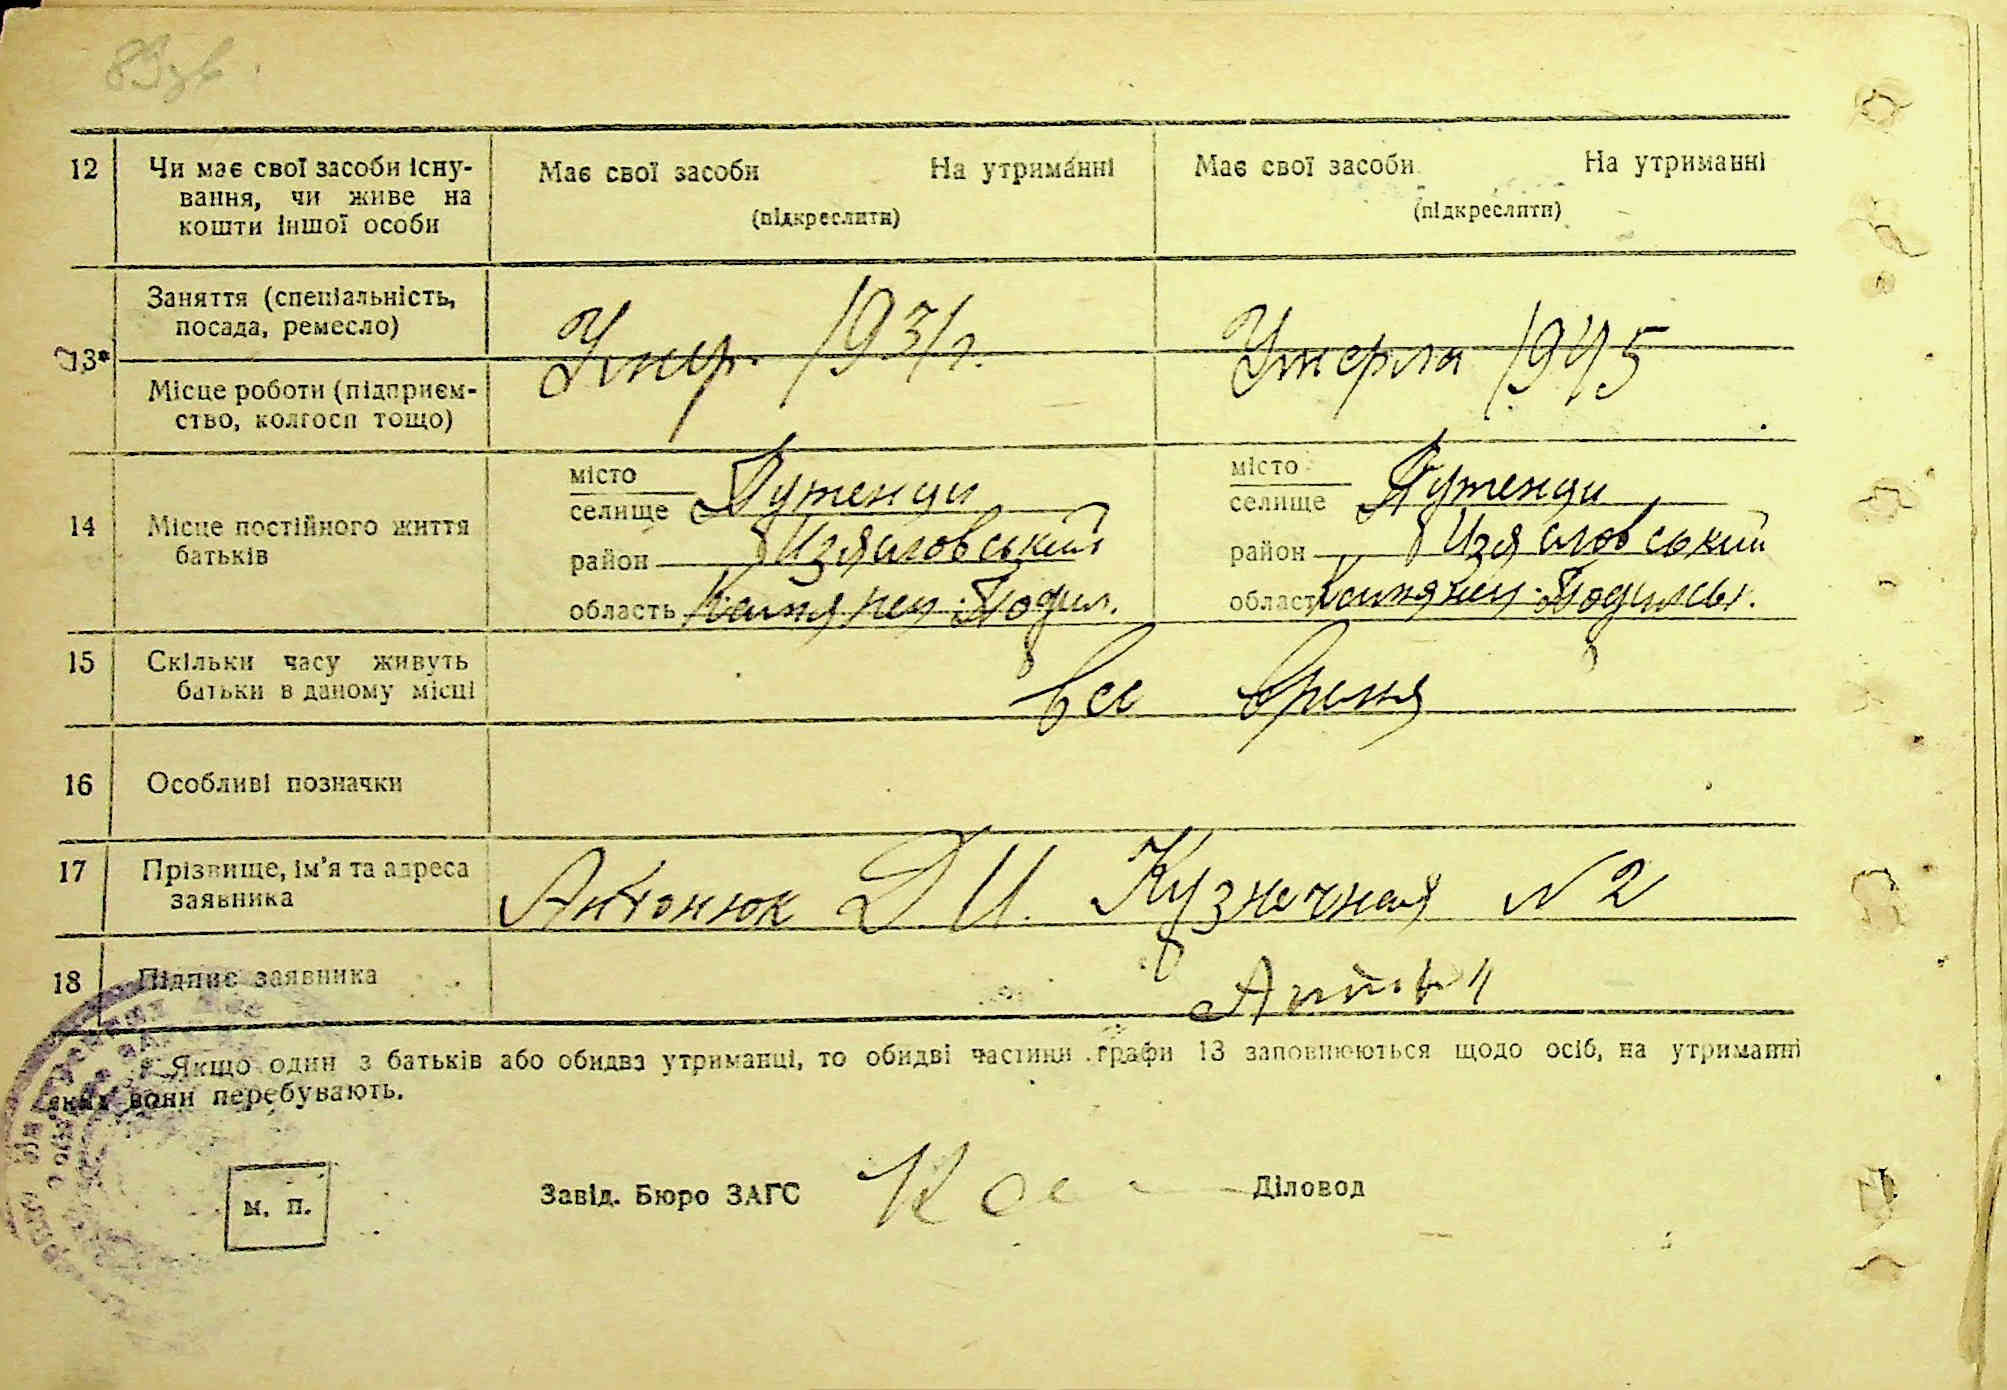 83 зв.
12
Чи має свої засоби існу-
вання, чи живе на
кошти іншої особи
Має свої засоби На утриманні
(підкреслити)
Має свої засоби На утриманні
(підкреслити)
13*
Заняття (спеціальність,
посада, ремесло)
Місце роботи (підприєм-
ство, колгосп тощо)
Умер. 1931г.
Умерла 1945
14
Місце постійного життя
батьків
місто
селище Путенци
район Изяславський
область Камянец-Подил.
місто
селище Путенци
район Изяславський
область Камянец-Подильськ.
15
Скільки часу живуть
батьки в даному місці
все время
16
Особливі позначки
17
Прізвище, ім'я та адреса
заявника
Антонюк Д И. Кузнечная N 2
18
Підпис заявника
* Якщо один з батьків або обидва утриманці, то обидві частини графи 13 заповнюються щодо осіб, на утриманні
яких вони перебувають.
м. п.
Завід. Бюро ЗАГС
Діловод